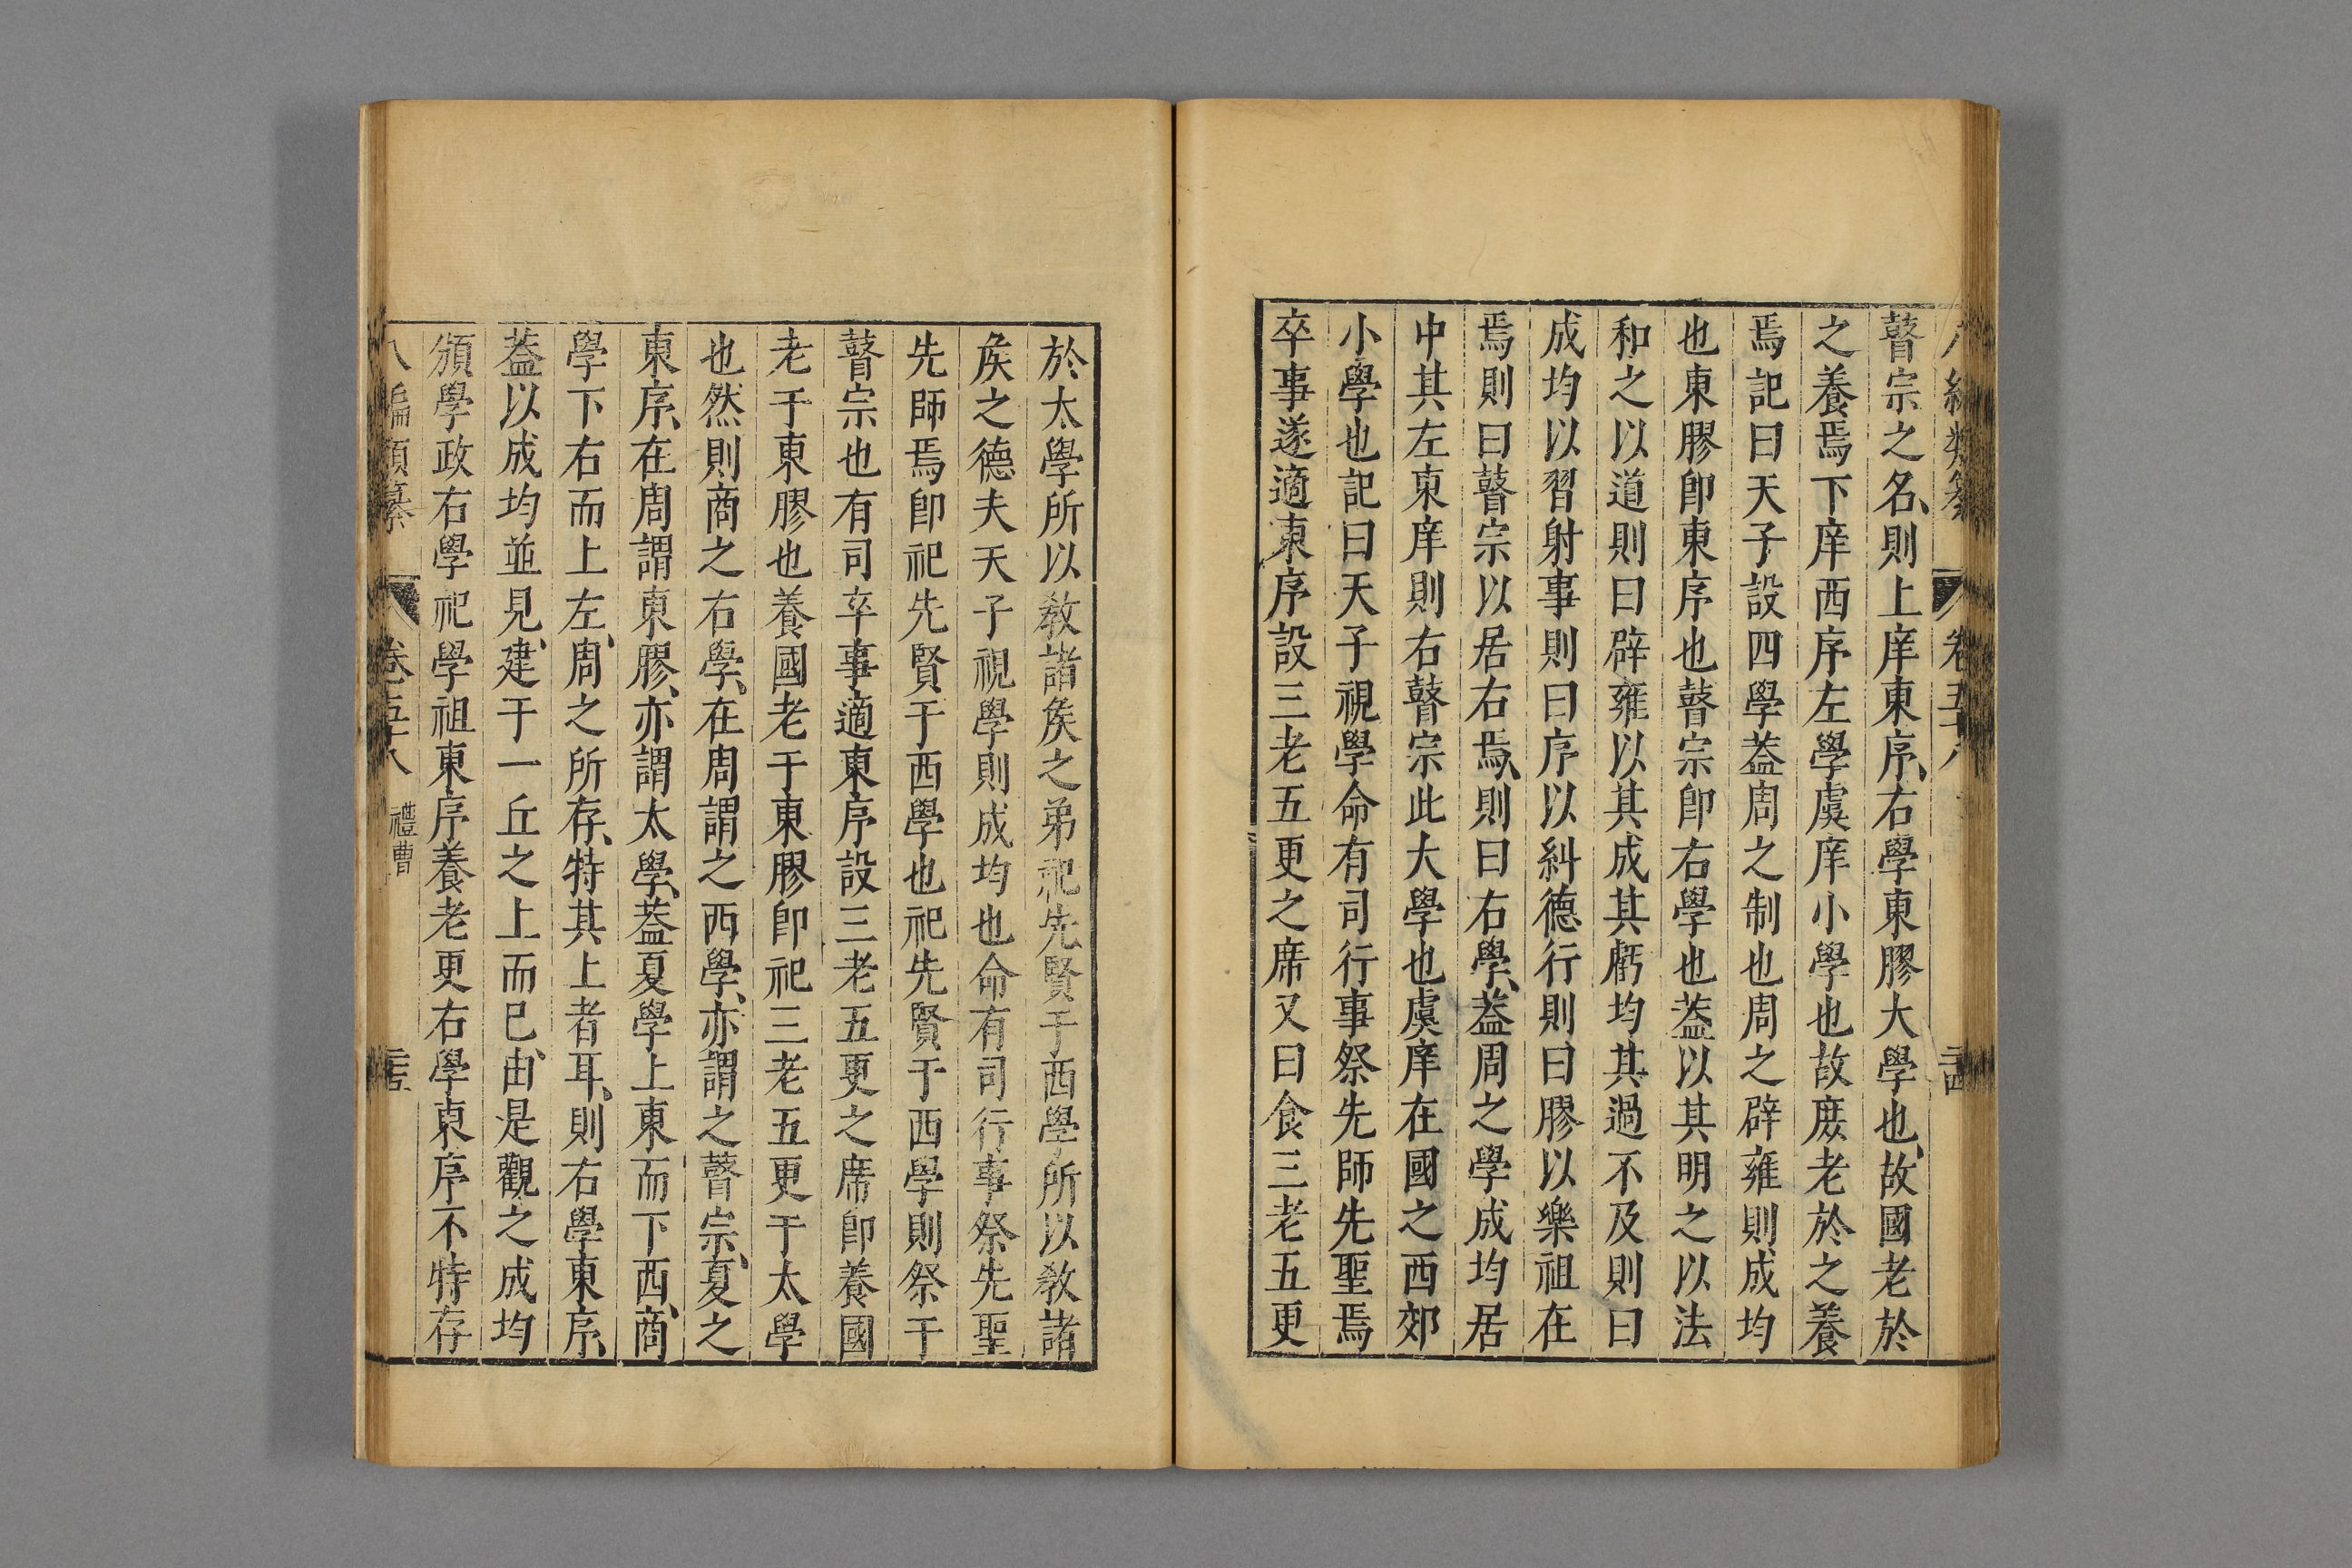 瞽宗之名、則上庠東序、右學東膠大學也、故國老於
之養焉下庠西序左學虞庠小學也故庶老於之養
焉記曰天子設四學葢周之制也周之辟雍則成均
也東膠卽東序也瞽宗卽右學也葢以其明之以法
和之以道則曰辟雍以其成其虧均其過不及則曰
成均以習射事則曰序以糾德行則曰膠以樂祖在
焉則曰瞽宗以居右焉、則曰右學、葢周之學成均居
中其左東庠則右瞽宗此大學也虞庠在國之西郊
小學也記曰天子視學命有司行事祭先師先聖焉
卒事遂適東序設三老五更之席又曰食三老五更
於太學所以敎諸矦之弟祀先賢于西學所以敎諸
矦之德夫天子視學則成均也命有司行事祭先聖
先師焉卽祀先賢于西學也祀先賢于西學則祭于
瞽宗也有司卒事適東序設三老五更之席卽養國
老于東膠也養國老于東膠卽祀三老五更于太學
也然則商之右學、在周謂之西學、亦謂之瞽宗、夏之
東序、在周謂東膠、亦謂太學、葢夏學上東而下西、商
學下右而上左、周之所存、特其上者耳、則右學東序、
葢以成均並見、建于一丘之上而已、由是觀之成均
頒學政右學祀學祖東序養老更右學東序不特存
八編類纂 卷五十八 禮曹 二十五